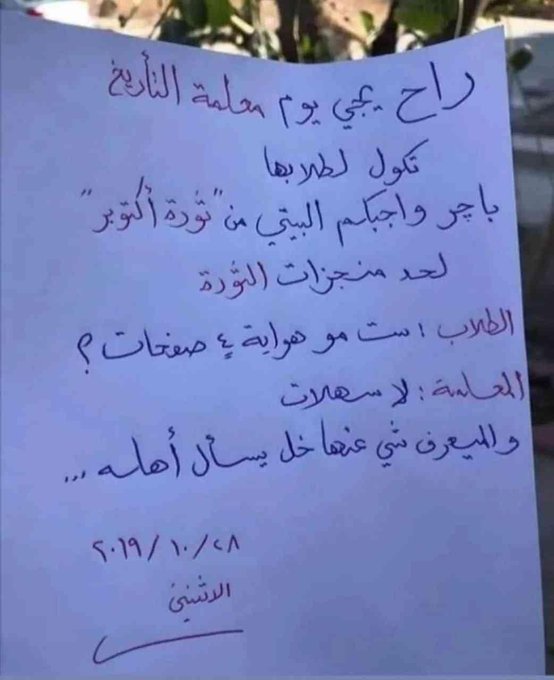 راح يجي يوم معلمة التأريخ
تكول لطلابها
باچر واجبكم البيتي من "ثورة أكتوبر"
لحد منجزات الثورة
الطلاب : ست مو هواية ٤ صفحات ؟
المعلمة : لا سهلات
والميعرف شي عنها خل يسأل أهله ...
٢٠١٩/١٠/٢٨
الاثنين